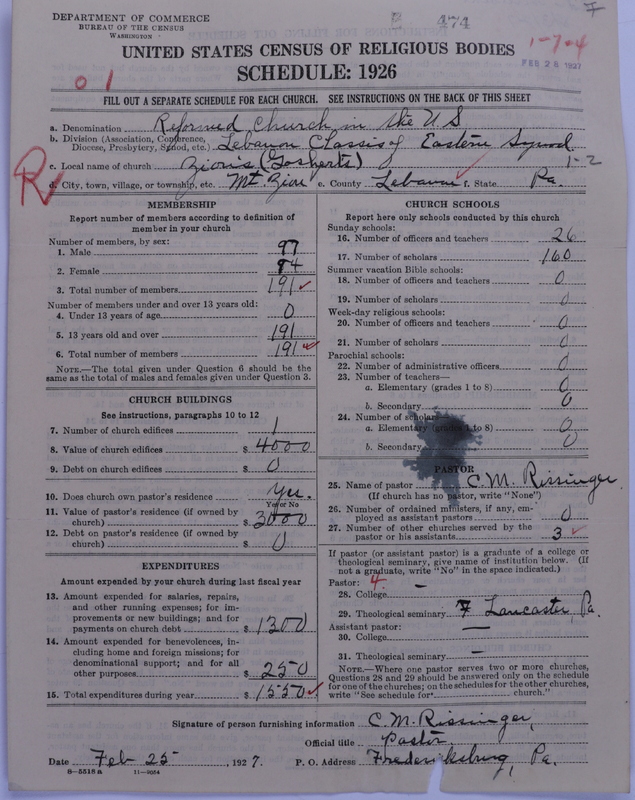 DEPARTMENT OF COMMERCE
BUREAU OF THE CENSUS
WASHINGTON
474
7
1-7-4
FEB 28 1927
UNITED STATES CENSUS OF RELIGIOUS BODIES
SCHEDULE: 1926
0 1
FILL OUT A SEPARATE SCHEDULE FOR EACH CHURCH. SEE INSTRUCTIONS ON THE BACK OF THIS SHEET
a. Denomination Reformed Church in the U S
b. Division (Association, Conference, Diocese, Presbytery, Synod, etc.) Lebanon Classis of Eastern Synod
c. Local name of church Zion's (Gosherts) 1-2
R
d. City, town, village, or township, etc. Mt. Zion e. County Lebanon f. State Pa.
MEMBERSHIP
Report number of members according to definition of member in your church
Number of members, by sex:
1. Male 97
2. Female 94
3. Total number of members 191
Number of members under and over 13 years old:
4. Under 13 years of age 0
5. 13 years old and over 191
6. Total number of members 191
NOTE.—The total given under Question 6 should be the same as the total of males and females given under Question 3.
CHURCH BUILDINGS
See instructions, paragraphs 10 to 12
7. Number of church edifices 1
8. Value of church edifices $ 4000
9. Debt on church edifices $ 0
10. Does church own pastor's residence Yes.
Yes or No
11. Value of pastor's residence (if owned by church) $ 3000
12. Debt on pastor's residence (if owned by church) $ 0
EXPENDITURES
Amount expended by your church during last fiscal year
13. Amount expended for salaries, repairs, and other running expenses; for improvements or new buildings; and for payments on church debt $ 1300
14. Amount expended for benevolences, including home and foreign missions; for denominational support; and for all other purposes $ 250
15. Total expenditures during year $ 1550
CHURCH SCHOOLS
Report here only schools conducted by this church
Sunday schools:
16. Number of officers and teachers 26
17. Number of scholars 160
Summer vacation Bible schools:
18. Number of officers and teachers 0
19. Number of scholars 0
Week-day religious schools:
20. Number of officers and teachers 0
21. Number of scholars 0
Parochial schools:
22. Number of administrative officers 0
23. Number of teachers—
a. Elementary (grades 1 to 8) 0
b. Secondary 0
24. Number of scholars—
a. Elementary (grades 1 to 8) 0
b. Secondary 0
PASTOR
25. Name of pastor C. M. Rissinger
(If church has no pastor, write "None")
26. Number of ordained ministers, if any, employed as assistant pastors 0
27. Number of other churches served by the pastor or his assistants 3
If pastor (or assistant pastor) is a graduate of a college or theological seminary, give name of institution below. (If not a graduate, write "No" in the space indicated.)
Pastor: 4
28. College —
29. Theological seminary Lancaster, Pa.
Assistant pastor: —
30. College
31. Theological seminary —
NOTE.—Where one pastor serves two or more churches, Questions 28 and 29 should be answered only on the schedule for one of the churches; on the schedules for the other churches, write "See schedule for church."
Signature of person furnishing information C. M. Rissinger,
Official title Pastor
Date Feb 25, 1927. P. O. Address Fredericksburg, Pa.
8-5518 a 11-9054